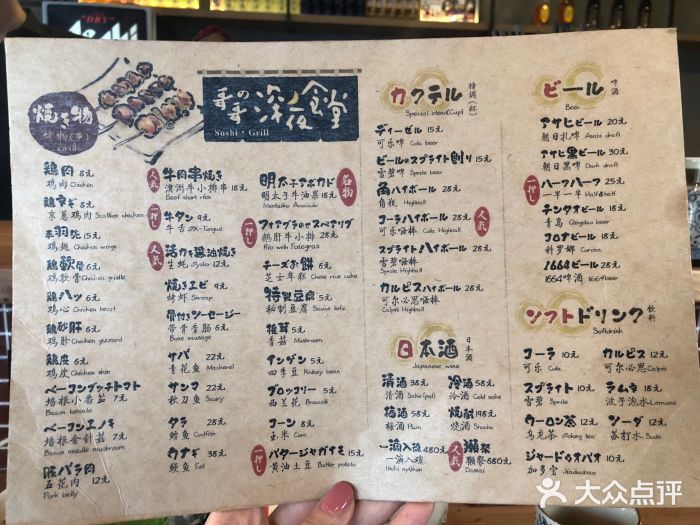 "DRY"
Asahi
焼き物
烤物(串)
Grill
哥の哥 深夜食堂
Sushi・Grill
鶏肉 8元
鸡肉 Chicken
鶏ネギ 8元
京葱鸡肉 Scallion chicken
手羽先 15元
鸡翅 Chicken wings
鶏軟骨 6元
鸡软骨 Chicken gristle
鶏ハツ 6元
鸡心 Chicken heart
鶏砂肝 8元
鸡肝 Chicken gizzard
鶏皮 6元
鸡皮 Chicken skin
ベーコンプッチトマト
培根小番茄 7元
Bacon tomato
ベーコンエノキ
培根金针菇 7元
Bacon needle mushroom
豚バラ肉
五花肉 12元
Pork belly
人気
牛肉串焼き
澳洲牛小排串 18元
Beef short ribs
一押し
牛タン 9元
牛舌 Ox-Tongue
人気
活力き醤油焼き
生蚝 Oyster 12元
焼きエビ 9元
烤虾 Shrimp
骨付きソーセージ
带骨香肠 6元
Bone sausage
サバ 22元
青花鱼 Mackerel
サンマ 22元
秋刀鱼 Saury
タラ 28元
鳕鱼 Codfish
ウナギ 38元
鳗鱼 Eel
名物
明太子アボカド
明太子牛油果 18元
Mentaiko Avocado
一押し
フォアグラのせスペアリブ
鹅肝牛小排 28元
Rib with Foiegras
チーズお餅 6元
芝士年糕 Chese rice cake
特製豆腐 5元
秘制豆腐 Sauce tofu
椎茸 5元
香菇 Mushroom
インゲン 5元
四季豆 Kidney bean
ブロッコリー 5元
西兰花 Broccoli
コーン 8元
玉米 Corn
一押し
バタージャガイモ 15元
黄油土豆 Butter potato
カクテル 特调(杯)
Special blend(Cup)
ディーゼル 15元
可乐啤 Cola beer
ビールのスプライト割り 15元
雪碧啤 Sprite beer
角ハイボール 28元
角嗨 Highball
人気
コーラハイボール 28元
可乐嗨棒 Cola Highball
スプライトハイボール 28元
雪碧嗨棒
Sprite Highball
カルピスハイボール 28元
可尔必思嗨棒
Calpis Highball
日本酒 日本酒
Japanese wine
清酒 38元
清酒 Sake(pot)
冷酒 58元
冷酒 Cold sake
梅酒 58元
梅酒 Plum
焼酎 198元
烧酒 Shochu
一滴入魂 480元
一滴入魂
人気
獺祭
獭祭 680元
Dassai
ビール 啤酒
Beer
アサヒビール 20元
朝日扎啤 Asahi draft
アサヒ黒ビール 30元
朝日黑啤 Dark draft
一押し
ハーフハーフ 25元
一半一半 Half&half
チンタオビール 28元
青岛 Qingdao beer
コロナビール 28元
科罗娜 Corona
1664ビール 28元
1664啤酒 1664beer
ソフトドリンク 饮料
Softdrink
コーラ 10元
可乐 Cola
カルピス 12元
可尔必思 Calpis
スプライト 10元
雪碧 Sprite
ラムネ 18元
波子泡水 Lamune
ウーロン茶 12元
乌龙茶 Oolong tea
ソーダ 12元
苏打水 Soda
ジャードゥオバオ 10元
加多宝 Jiaduobao
大众点评